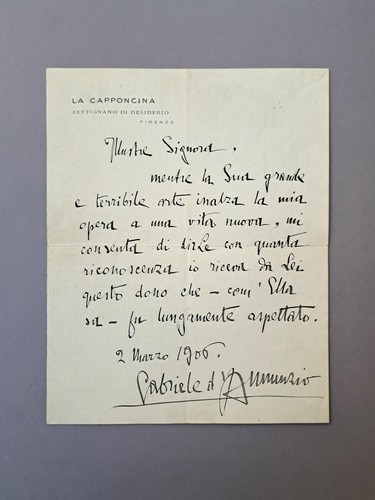 LA CAPPONCINA
SETTIGNANO DI DESIDERIO
FIRENZE
Illustre Signora.
mentre la Sua grande
e terribile arte inalza la mia
opera a una vita nuova, mi
consenta di dirLe con quanta
riconoscenza io riceva da Lei
questo dono che – com' Ella
sa – fu lungamente aspettato.
2 Marzo 1906.
Gabriele d'Annunzio